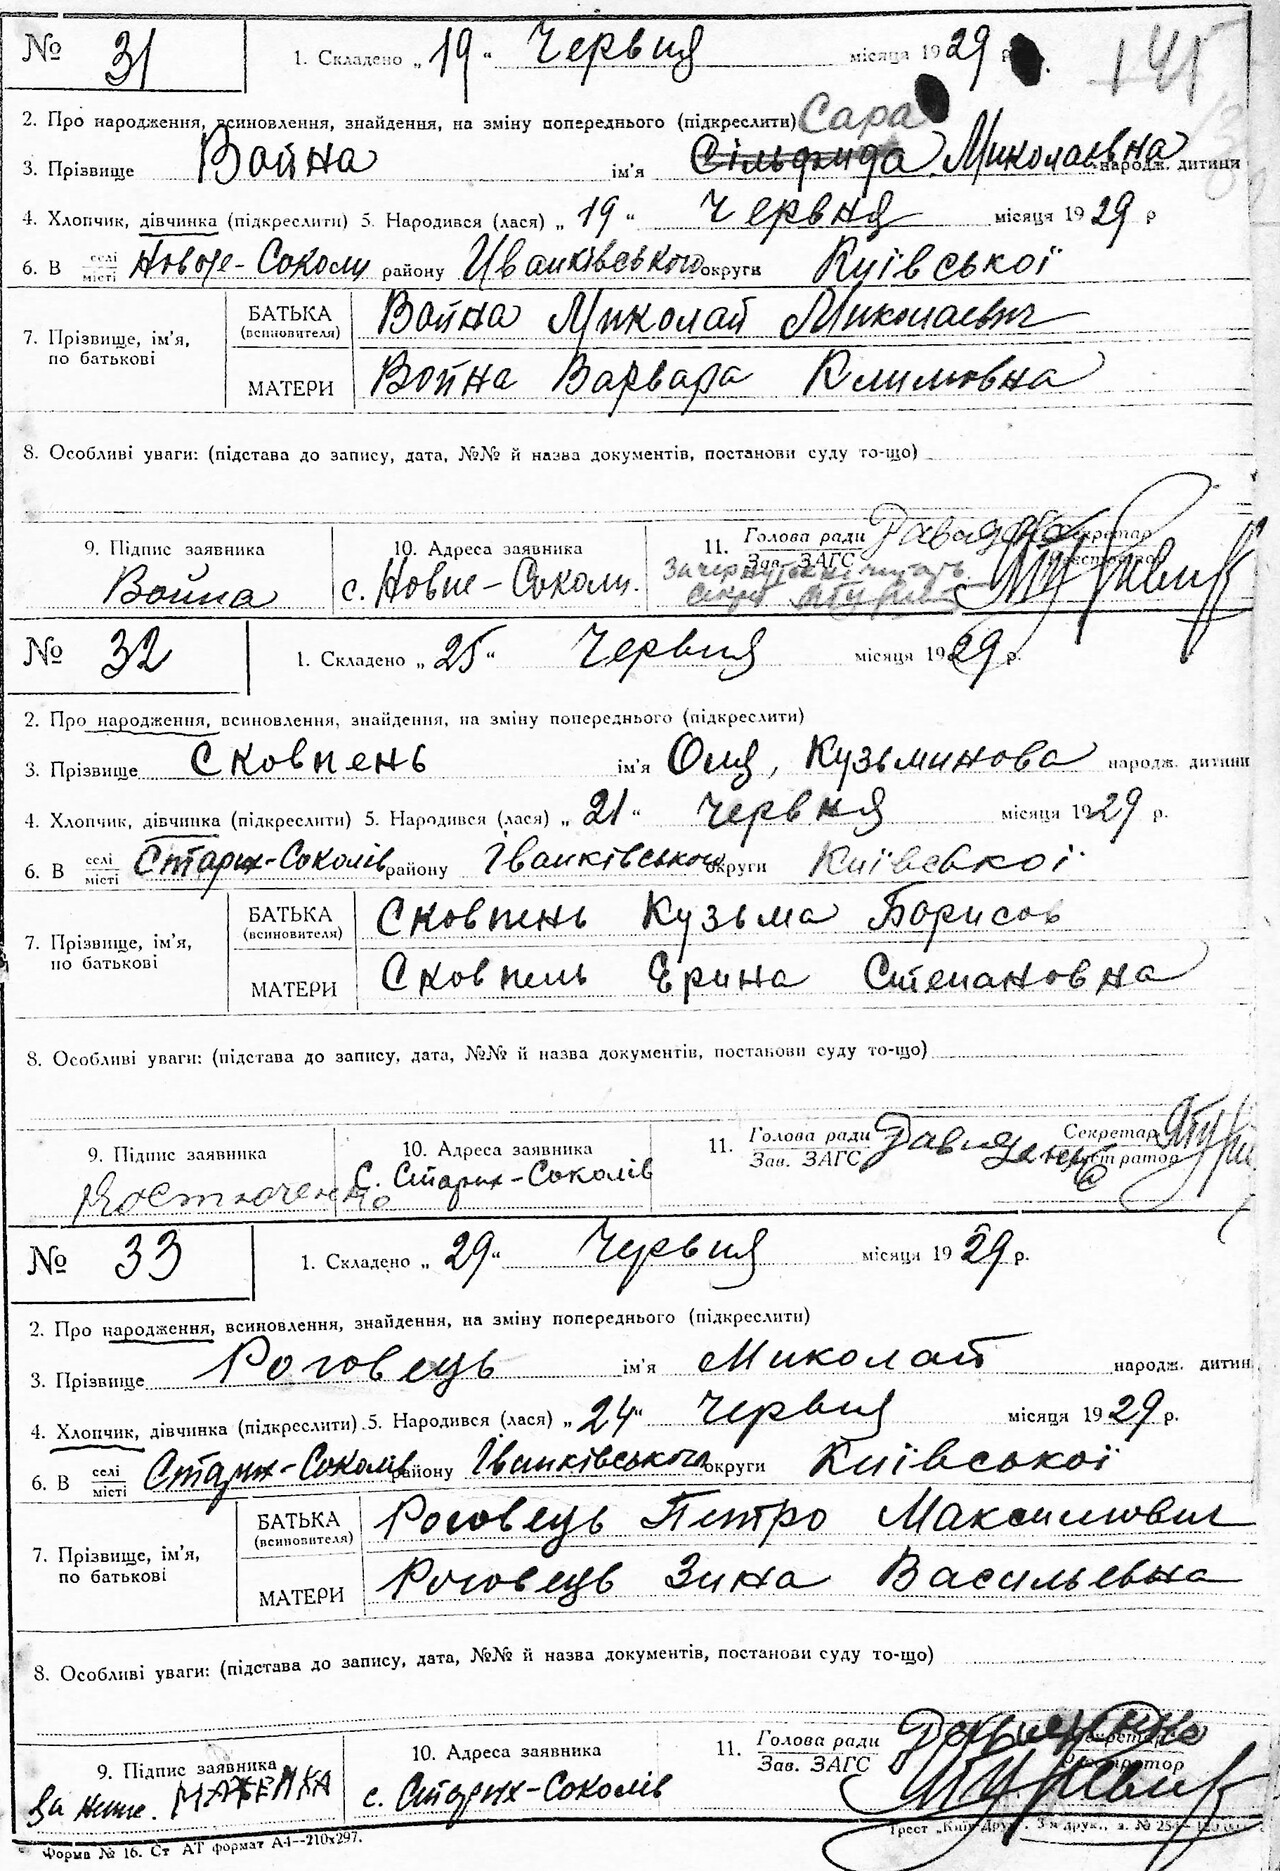 № 31 1. Складено „19“ Червня місяця 1929 р. +45
2. Про народження, всиновлення, знайдення, на зміну попереднього (підкреслити) Сара
3. Прізвище Война ім'я Сільфида Миколаевна народж. дитини
4. Хлопчик, дівчинка (підкреслити) 5. Народився (лася) „19“ Червня місяця 1929 р
6. В селі місті Новые-Соколы району Иванківського округи Київської
7. Прізвище, ім'я, по батькові
БАТЬКА (всиновителя) Война Миколай Миколаевич
МАТЕРИ Война Варвара Климовна
8. Особливі уваги: (підстава до запису, дата, №№ й назва документів, постанови суду то-що)
9. Підпис заявника 10. Адреса заявника 11. Голова ради Зав. ЗАГС Секретар
Война с. Новие-Соколи.
№ 32 1. Складено „25“ Червня місяця 1929 р.
2. Про народження, всиновлення, знайдення, на зміну попереднього (підкреслити)
3. Прізвище Сковпень ім'я Оля, Кузьминова народж. дитини
4. Хлопчик, дівчинка (підкреслити) 5. Народився (лася) „21“ Червня місяця 1929 р.
6. В селі місті Старых-Соколів району Іванківського округи Київської
7. Прізвище, ім'я, по батькові
БАТЬКА (всиновителя) Сковпень Кузьма Борисов
МАТЕРИ Сковпень Ерина Степановна
8. Особливі уваги: (підстава до запису, дата, №№ й назва документів, постанови суду то-що)
9. Підпис заявника 10. Адреса заявника 11. Голова ради Зав. ЗАГС Секретар
с. Старих-Соколів
№ 33 1. Складено „29“ Червня місяця 1929 р.
2. Про народження, всиновлення, знайдення, на зміну попереднього (підкреслити)
3. Прізвище Роговець ім'я Миколай народж. дитин
4. Хлопчик, дівчинка (підкреслити) 5. Народився (лася) „24“ Червня місяця 1929 р.
6. В селі місті Старих-Соколів району Іванківського округи Київської
7. Прізвище, ім'я, по батькові
БАТЬКА (всиновителя) Роговець Петро Максимович
МАТЕРИ Роговець Зина Васильевна
8. Особливі уваги: (підстава до запису, дата, №№ й назва документів, постанови суду то-що)
9. Підпис заявника 10. Адреса заявника 11. Голова ради Зав. ЗАГС
с. Старих-Соколів
Форма № 16. Ст АТ формат А4—210х297. Трест „Київ-Друк“, 3-я друк., з. № 254